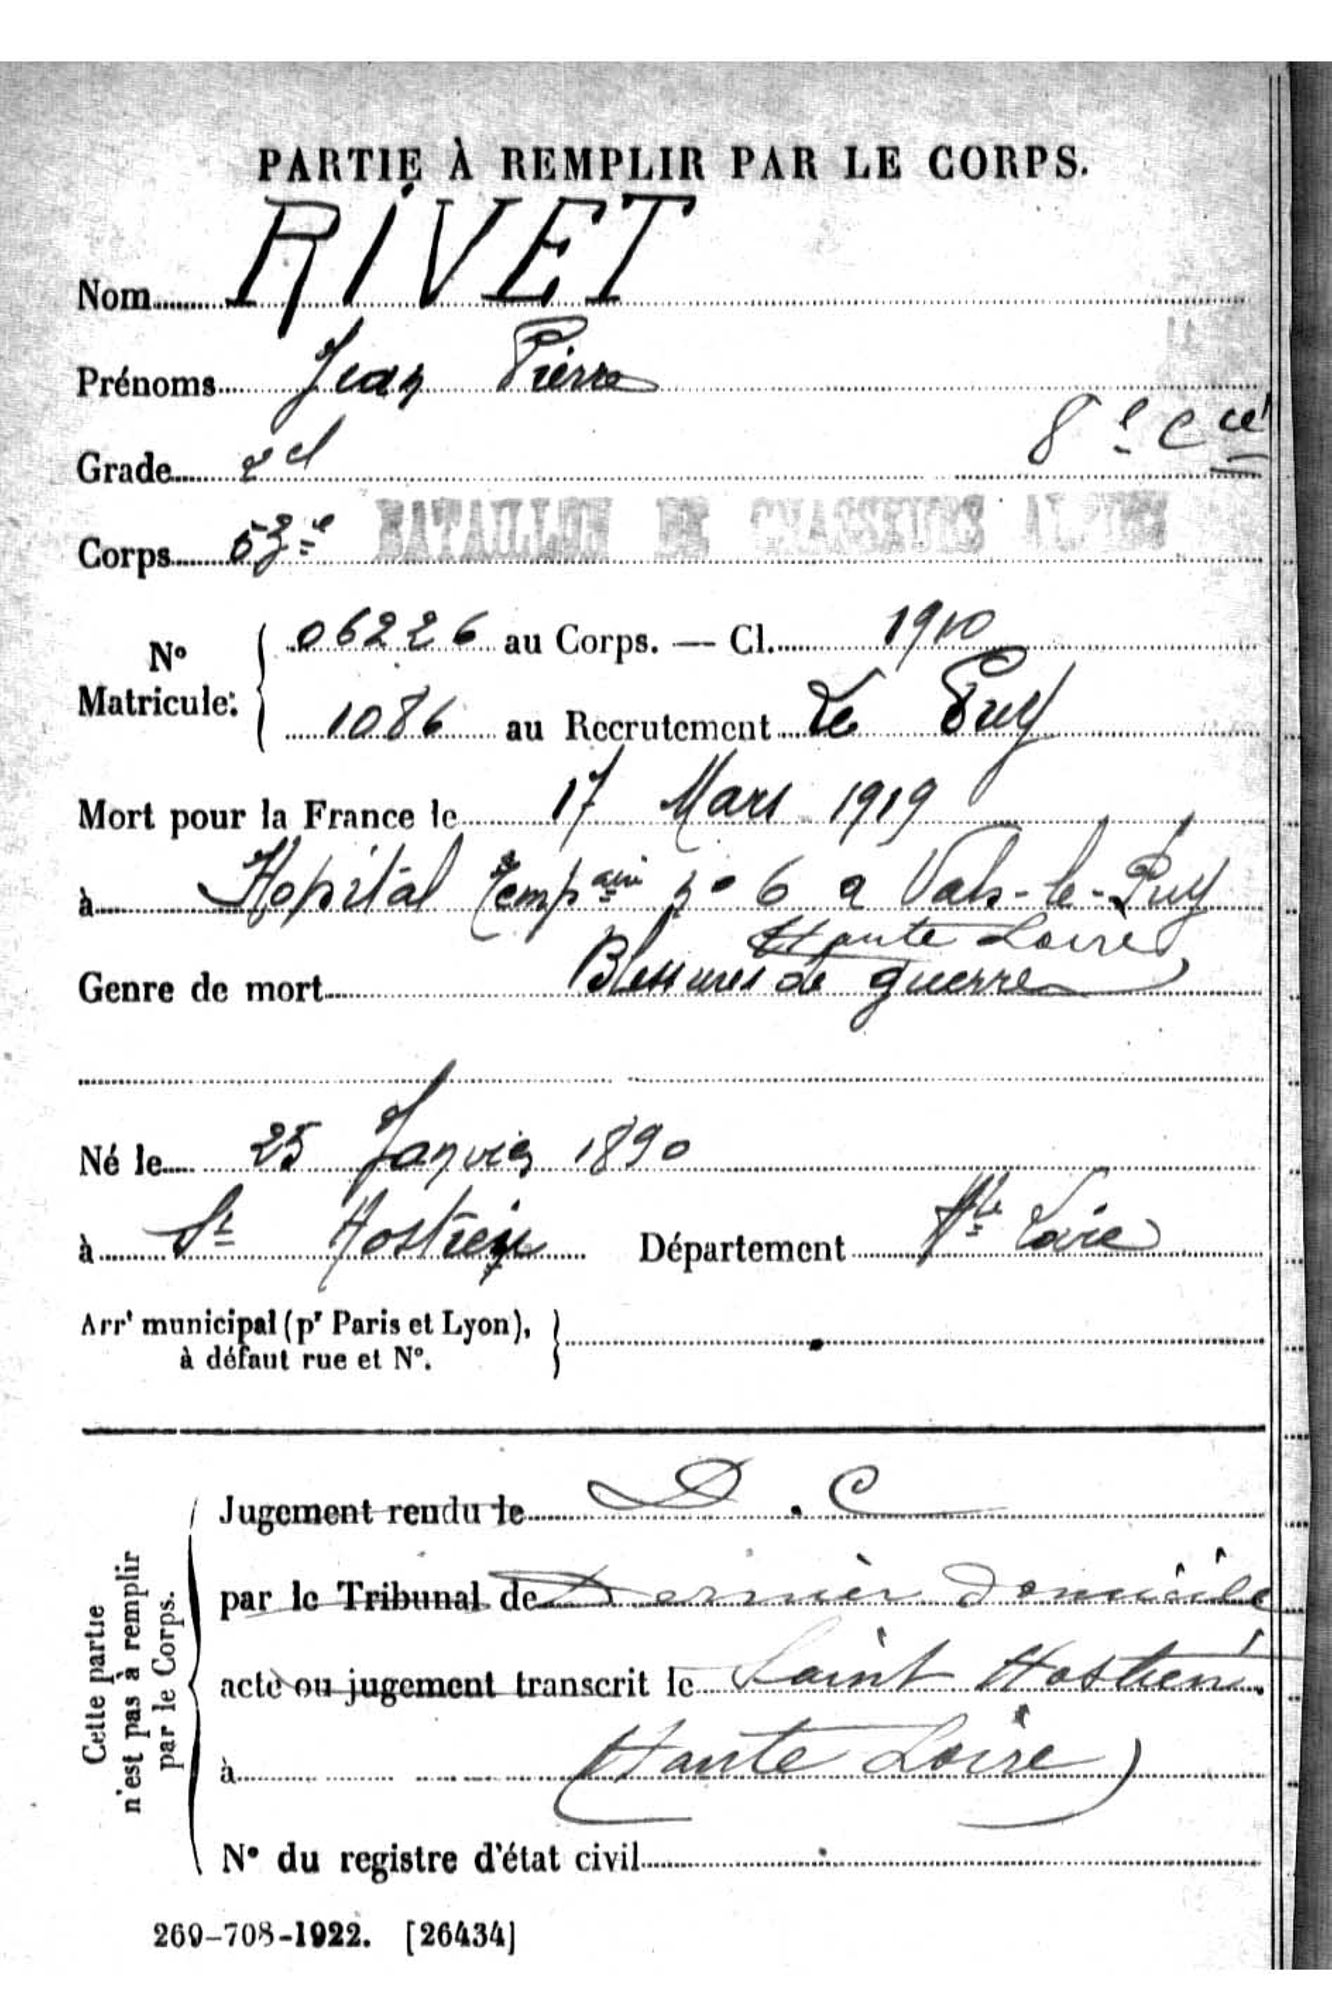 PARTIE À REMPLIR PAR LE CORPS.
Nom RIVET
Prénoms Jean Pierre
Grade 2e cl
8e Cie
Corps 53e BATAILLON DE CHASSEURS ALPINS
No Matricule: 06226 au Corps. — Cl. 1910
1086 au Recrutement Le Puy
Mort pour la France le 17 Mars 1919
à Hopital Tempaire no 6 a Vals-le-Puy
Haute Loire
Genre de mort Blessures de guerre
Né le 25 Janvier 1890
à St Hostien Département Hte Loire
Arrt municipal (pr Paris et Lyon),
à défaut rue et No.
Cette partie
n'est pas à remplir
par le Corps.
Jugement rendu le D.C
par le Tribunal de Dernier domicile
acte ou jugement transcrit le Saint Hostien
à (Haute Loire)
No du registre d'état civil
269-708-1922. [26434]